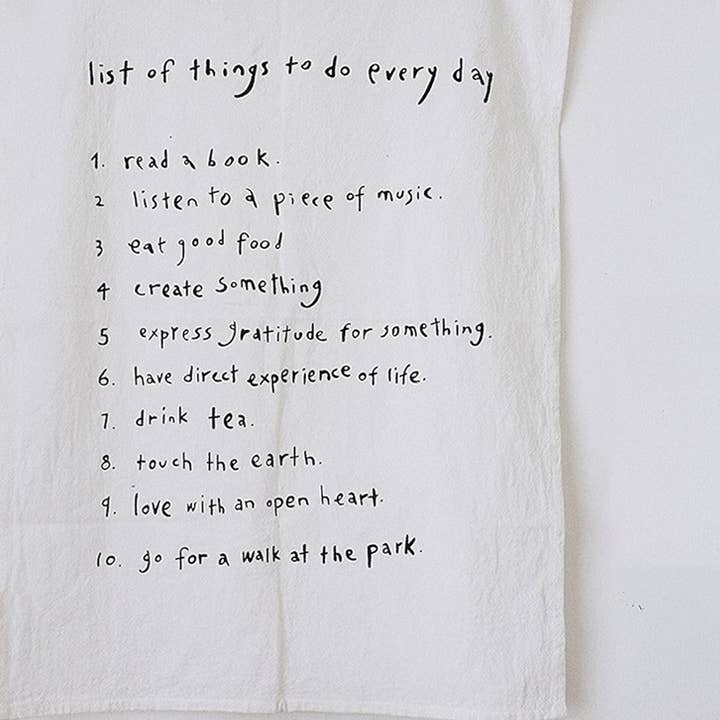 list of things to do every day
1. read a book.
2 listen to a piece of music.
3 eat good food
4 create something
5 express gratitude for something.
6. have direct experience of life.
7. drink tea.
8. touch the earth.
9. love with an open heart.
10. go for a walk at the park.